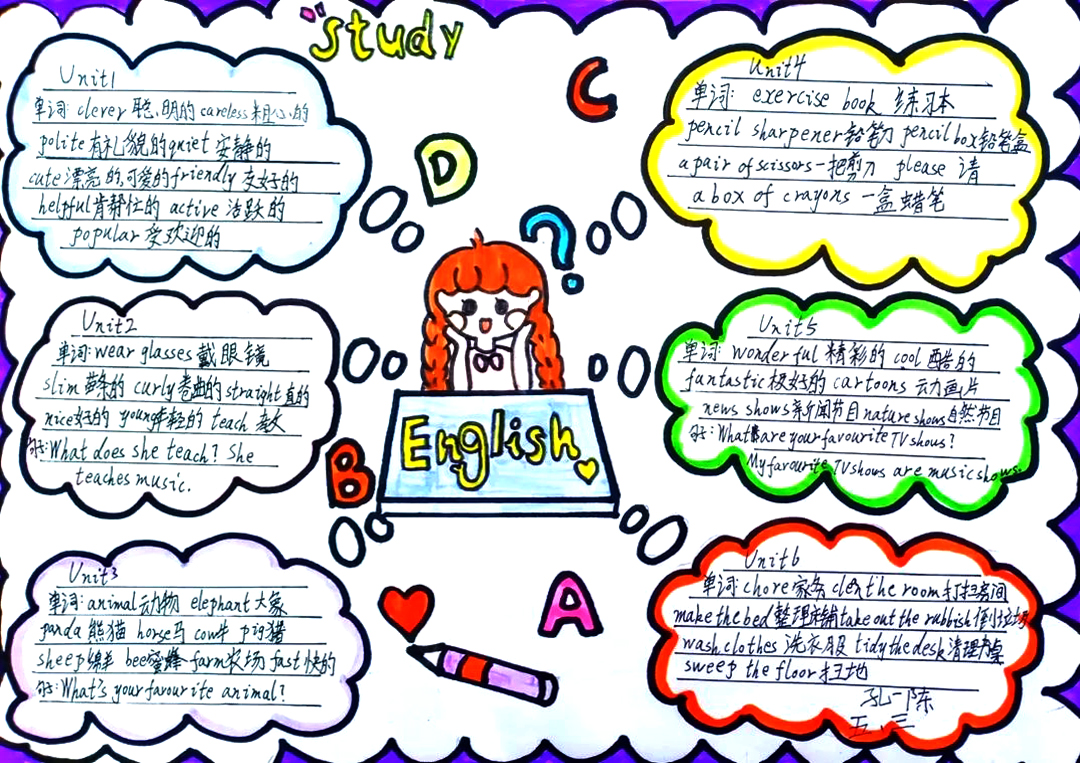 study
C
D
?
B
A
English
Unit1
单词: clever 聪明的 careless 粗心的
polite 有礼貌的 quiet 安静的
cute 漂亮的,可爱的 friendly 友好的
helpful 肯帮忙的 active 活跃的
popular 受欢迎的
Unit2
单词: wear glasses 戴眼镜
slim 苗条的 curly 卷曲的 straight 直的
nice 好的 young 年轻的 teach 教
句: What does she teach? She
teaches music.
Unit3
单词: animal 动物 elephant 大象
panda 熊猫 horse 马 cow 牛 pig 猪
sheep 绵羊 bee 蜜蜂 farm 农场 fast 快的
句: What's your favourite animal?
Unit4
单词: exercise book 练习本
pencil sharpener 铅笔刀 pencil box 铅笔盒
a pair of scissors 一把剪刀 please 请
a box of crayons 一盒蜡笔
Unit5
单词: wonderful 精彩的 cool 酷的
fantastic 极好的 cartoons 动画片
news shows 新闻节目 nature shows 自然节目
句: What are your favourite TV shows?
My favourite TV shows are music shows.
Unit6
单词: chore 家务 clen the room 打扫房间
make the bed 整理床铺 take out the rubbish 倒垃圾
wash clothes 洗衣服 tidy the desk 清理书桌
sweep the floor 扫地
五、三